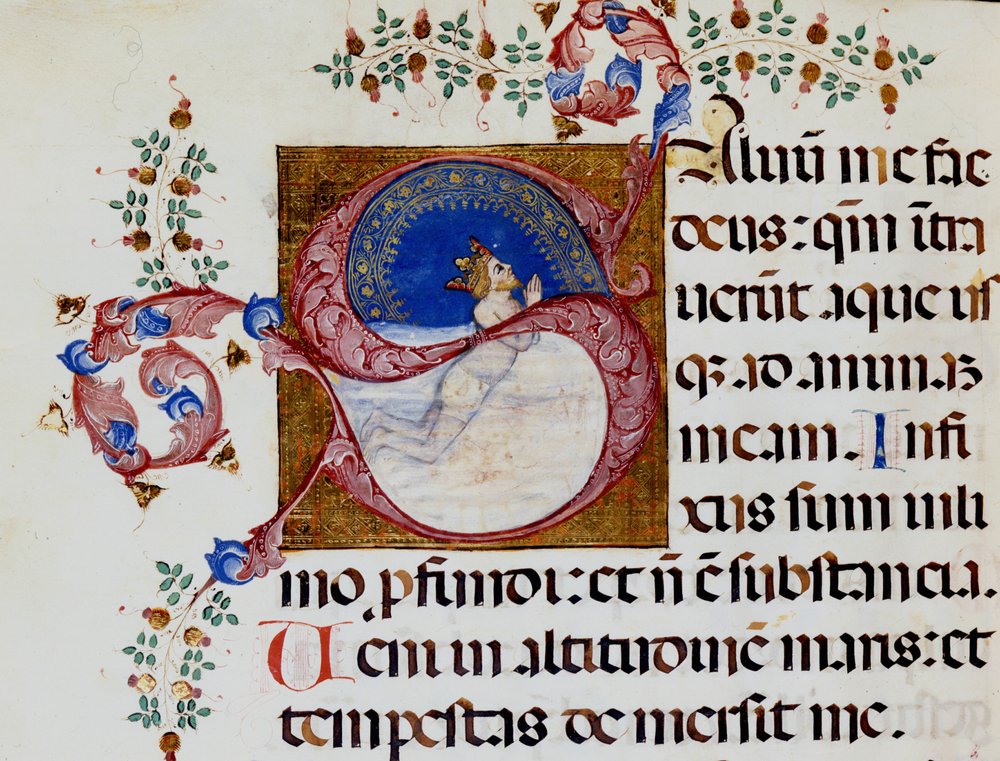 Saluū me fac
deus: qm̄ ītra
uerūt aque us
qꝫ ad animaꝫ
meam. Infi
xus sum in li
mo ꝓfundi: et n̄ ē substancia.
Ueni in altitudinē maris: et
tempestas demersit me.